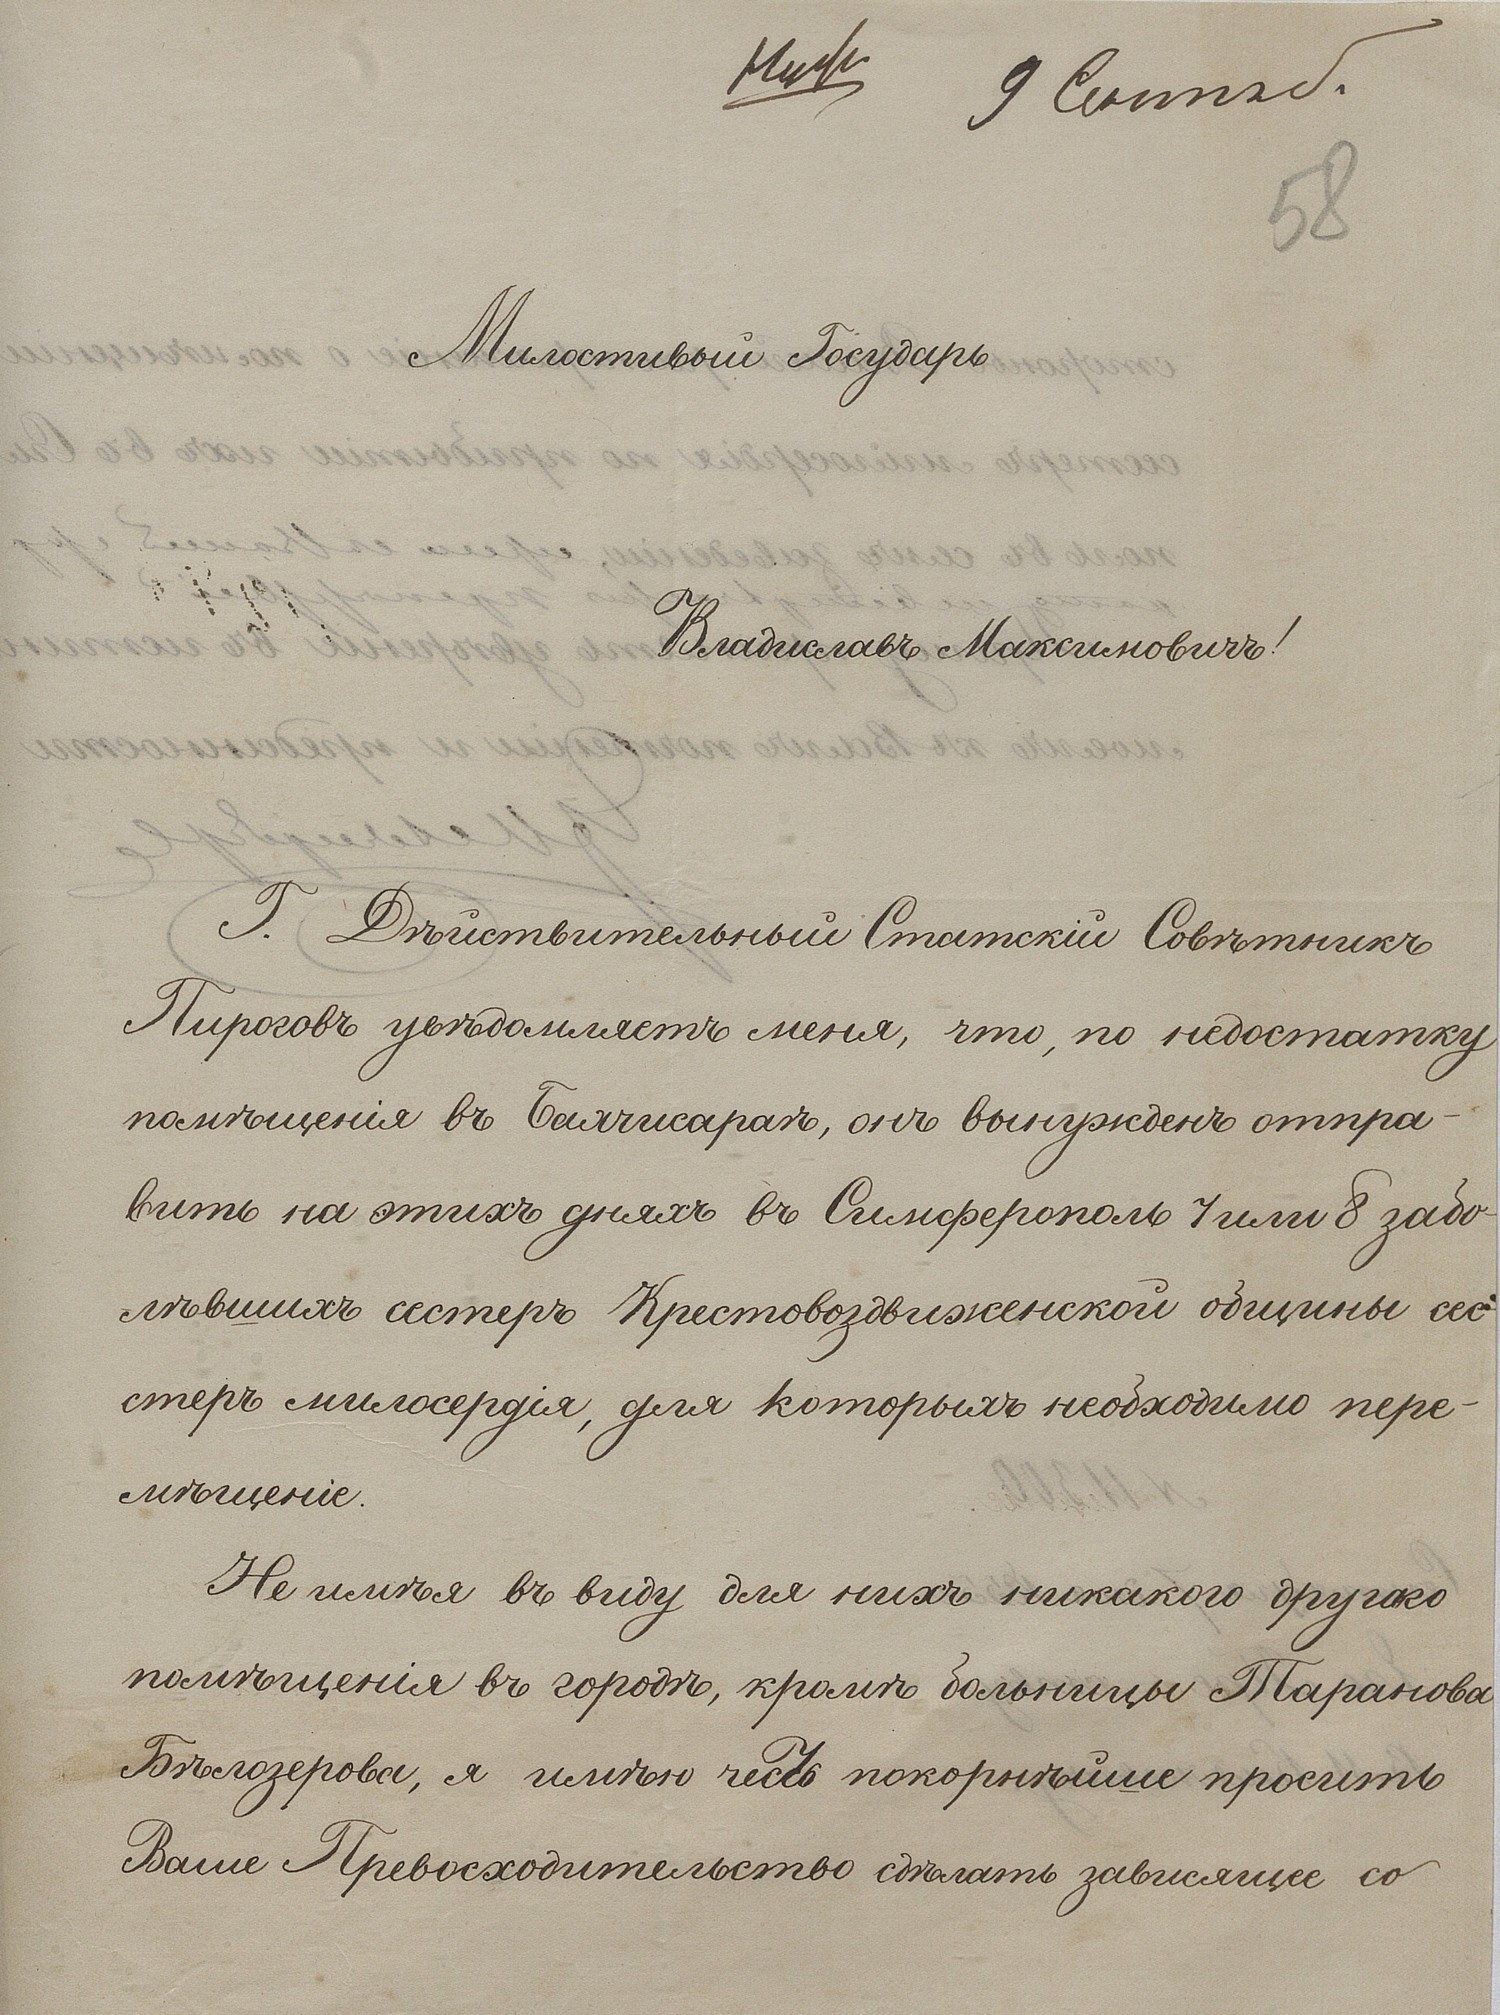 9 Сентяб.
58
Милостивый Государь
Владиславъ Максимовичъ!
Г. Дѣйствительный Статскій Совѣтникъ
Пироговъ увѣдомляетъ меня, что, по недостатку
помѣщенія въ Бахчисараѣ, онъ вынужденъ отпра-
вить на этихъ дняхъ въ Симферополь 7 или 8 забо-
лѣвшихъ сестеръ Крестовоздвиженской общины сес-
стеръ милосердія, для которыхъ необходимо пере-
мѣщеніе.
Не имѣя въ виду для нихъ никакого другаго
помѣщенія въ городѣ, кромѣ больницы Таранова
Бѣлозерова, я имѣю честь покорнѣйше просить
Ваше Превосходительство сдѣлать зависящее со